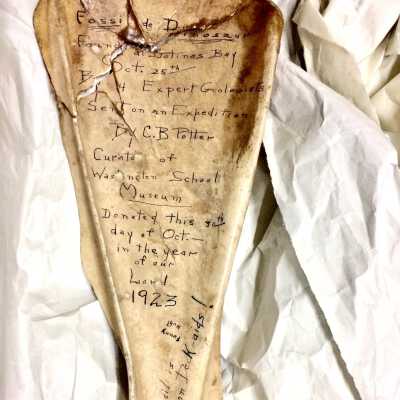 Fossi de Dinosaur
Found in Bolinas Bay
Oct. 25th
By 4 Expert Geologists
Sent on an Expedition
By C.B Potter
Curator of
Washington School
Museum
Donated this 30th
day of Oct.—
in the year
of our
Lord
1923